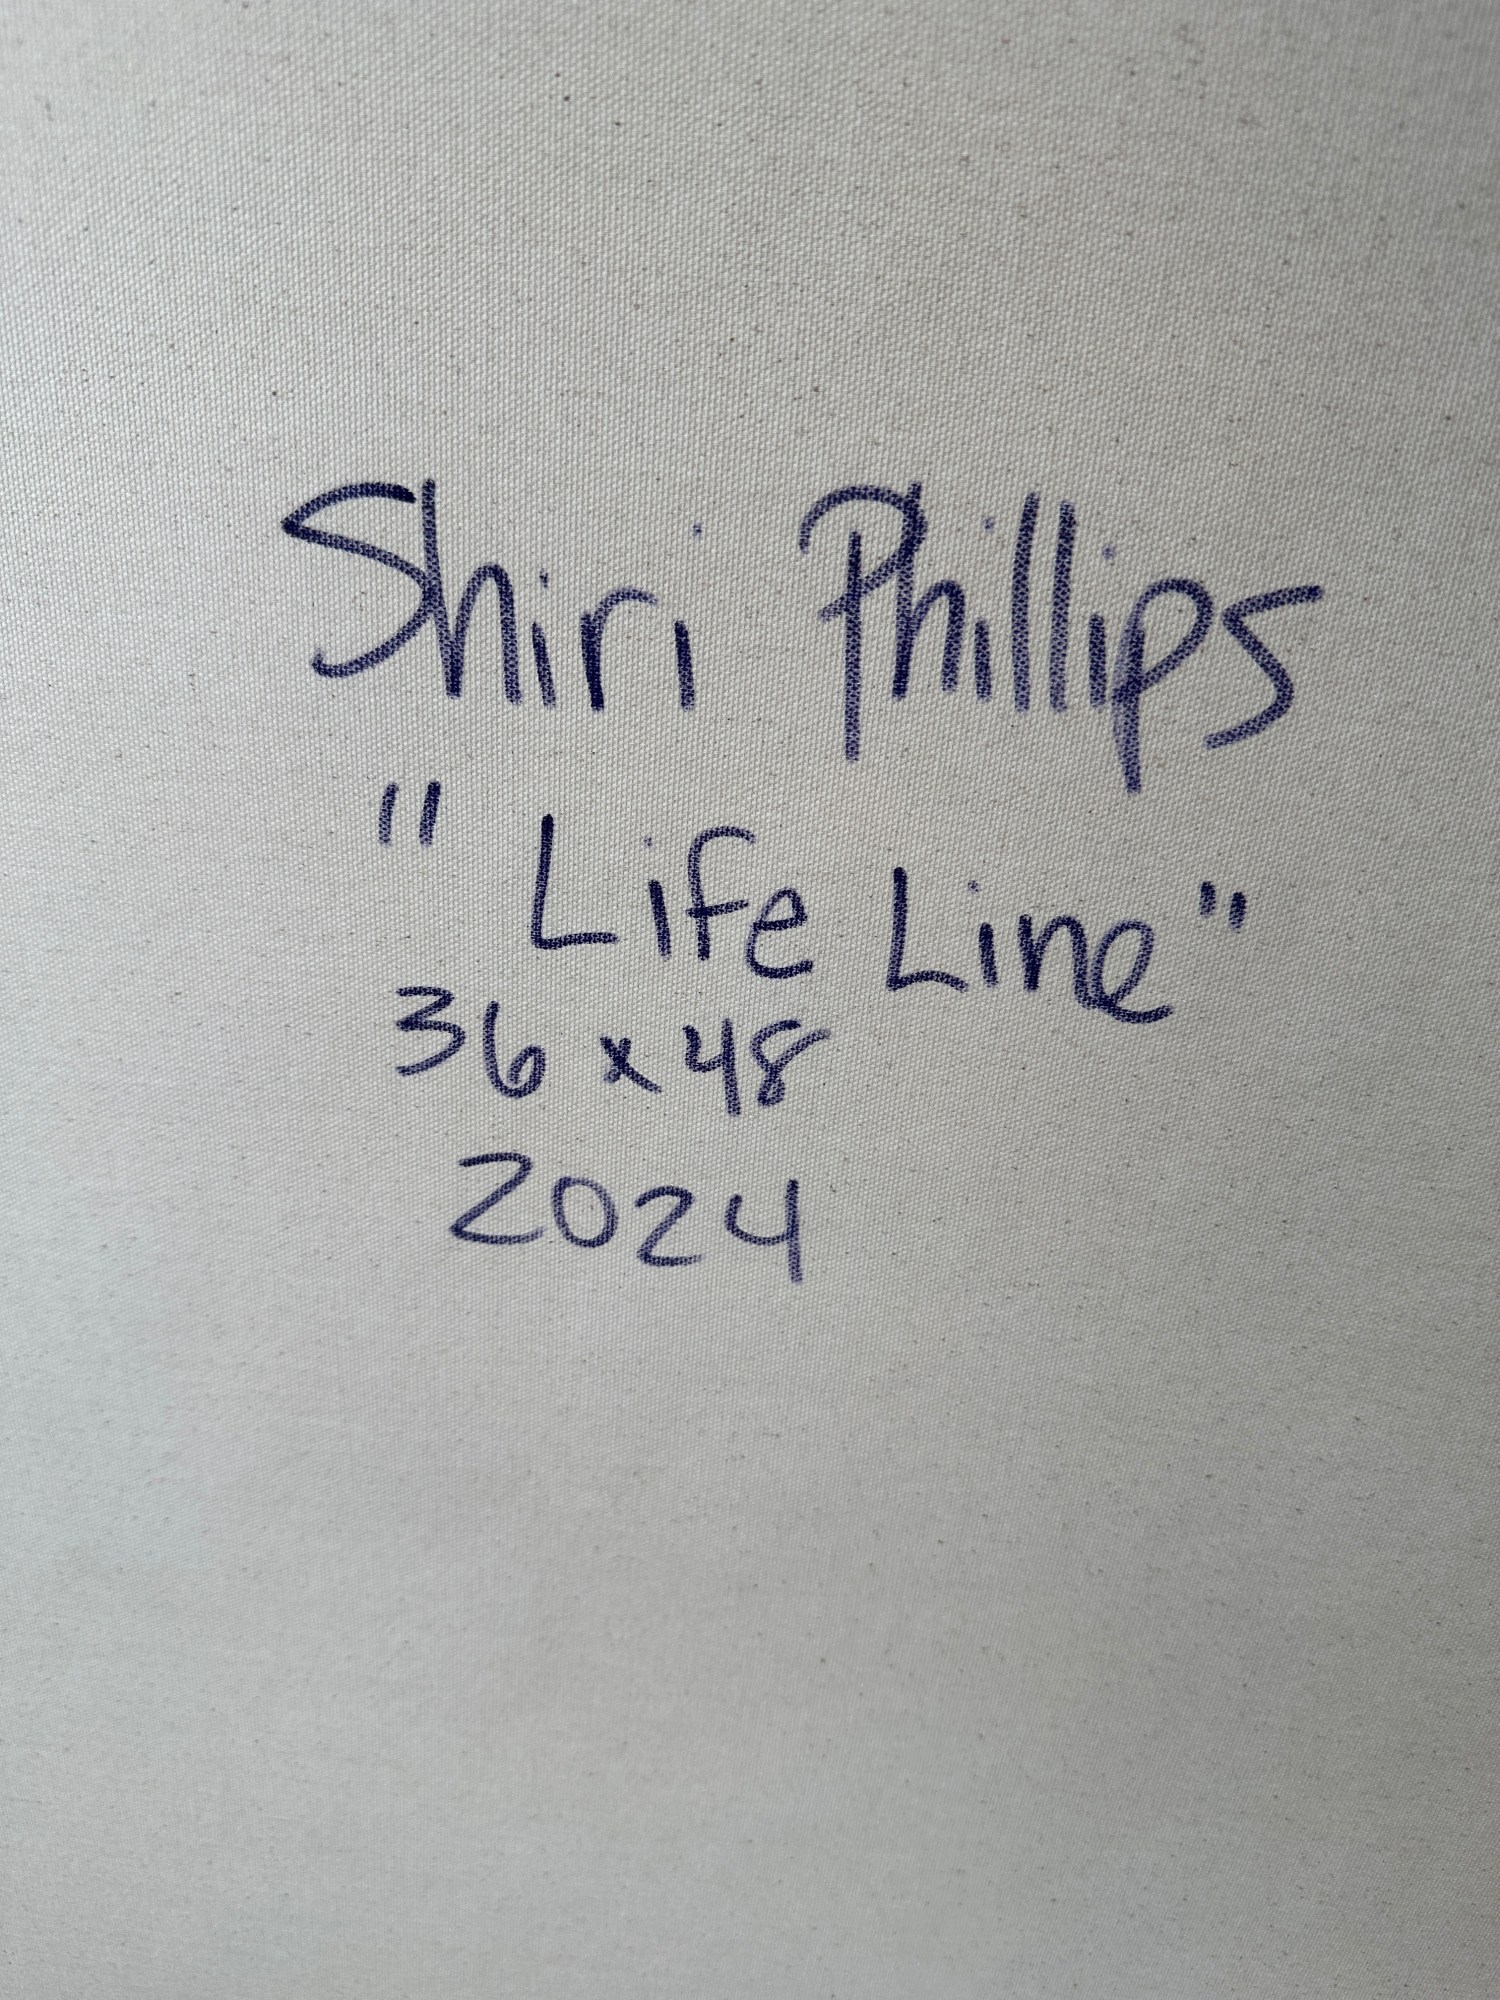 Shiri Phillips
"Life Line"
36 x 48
2024